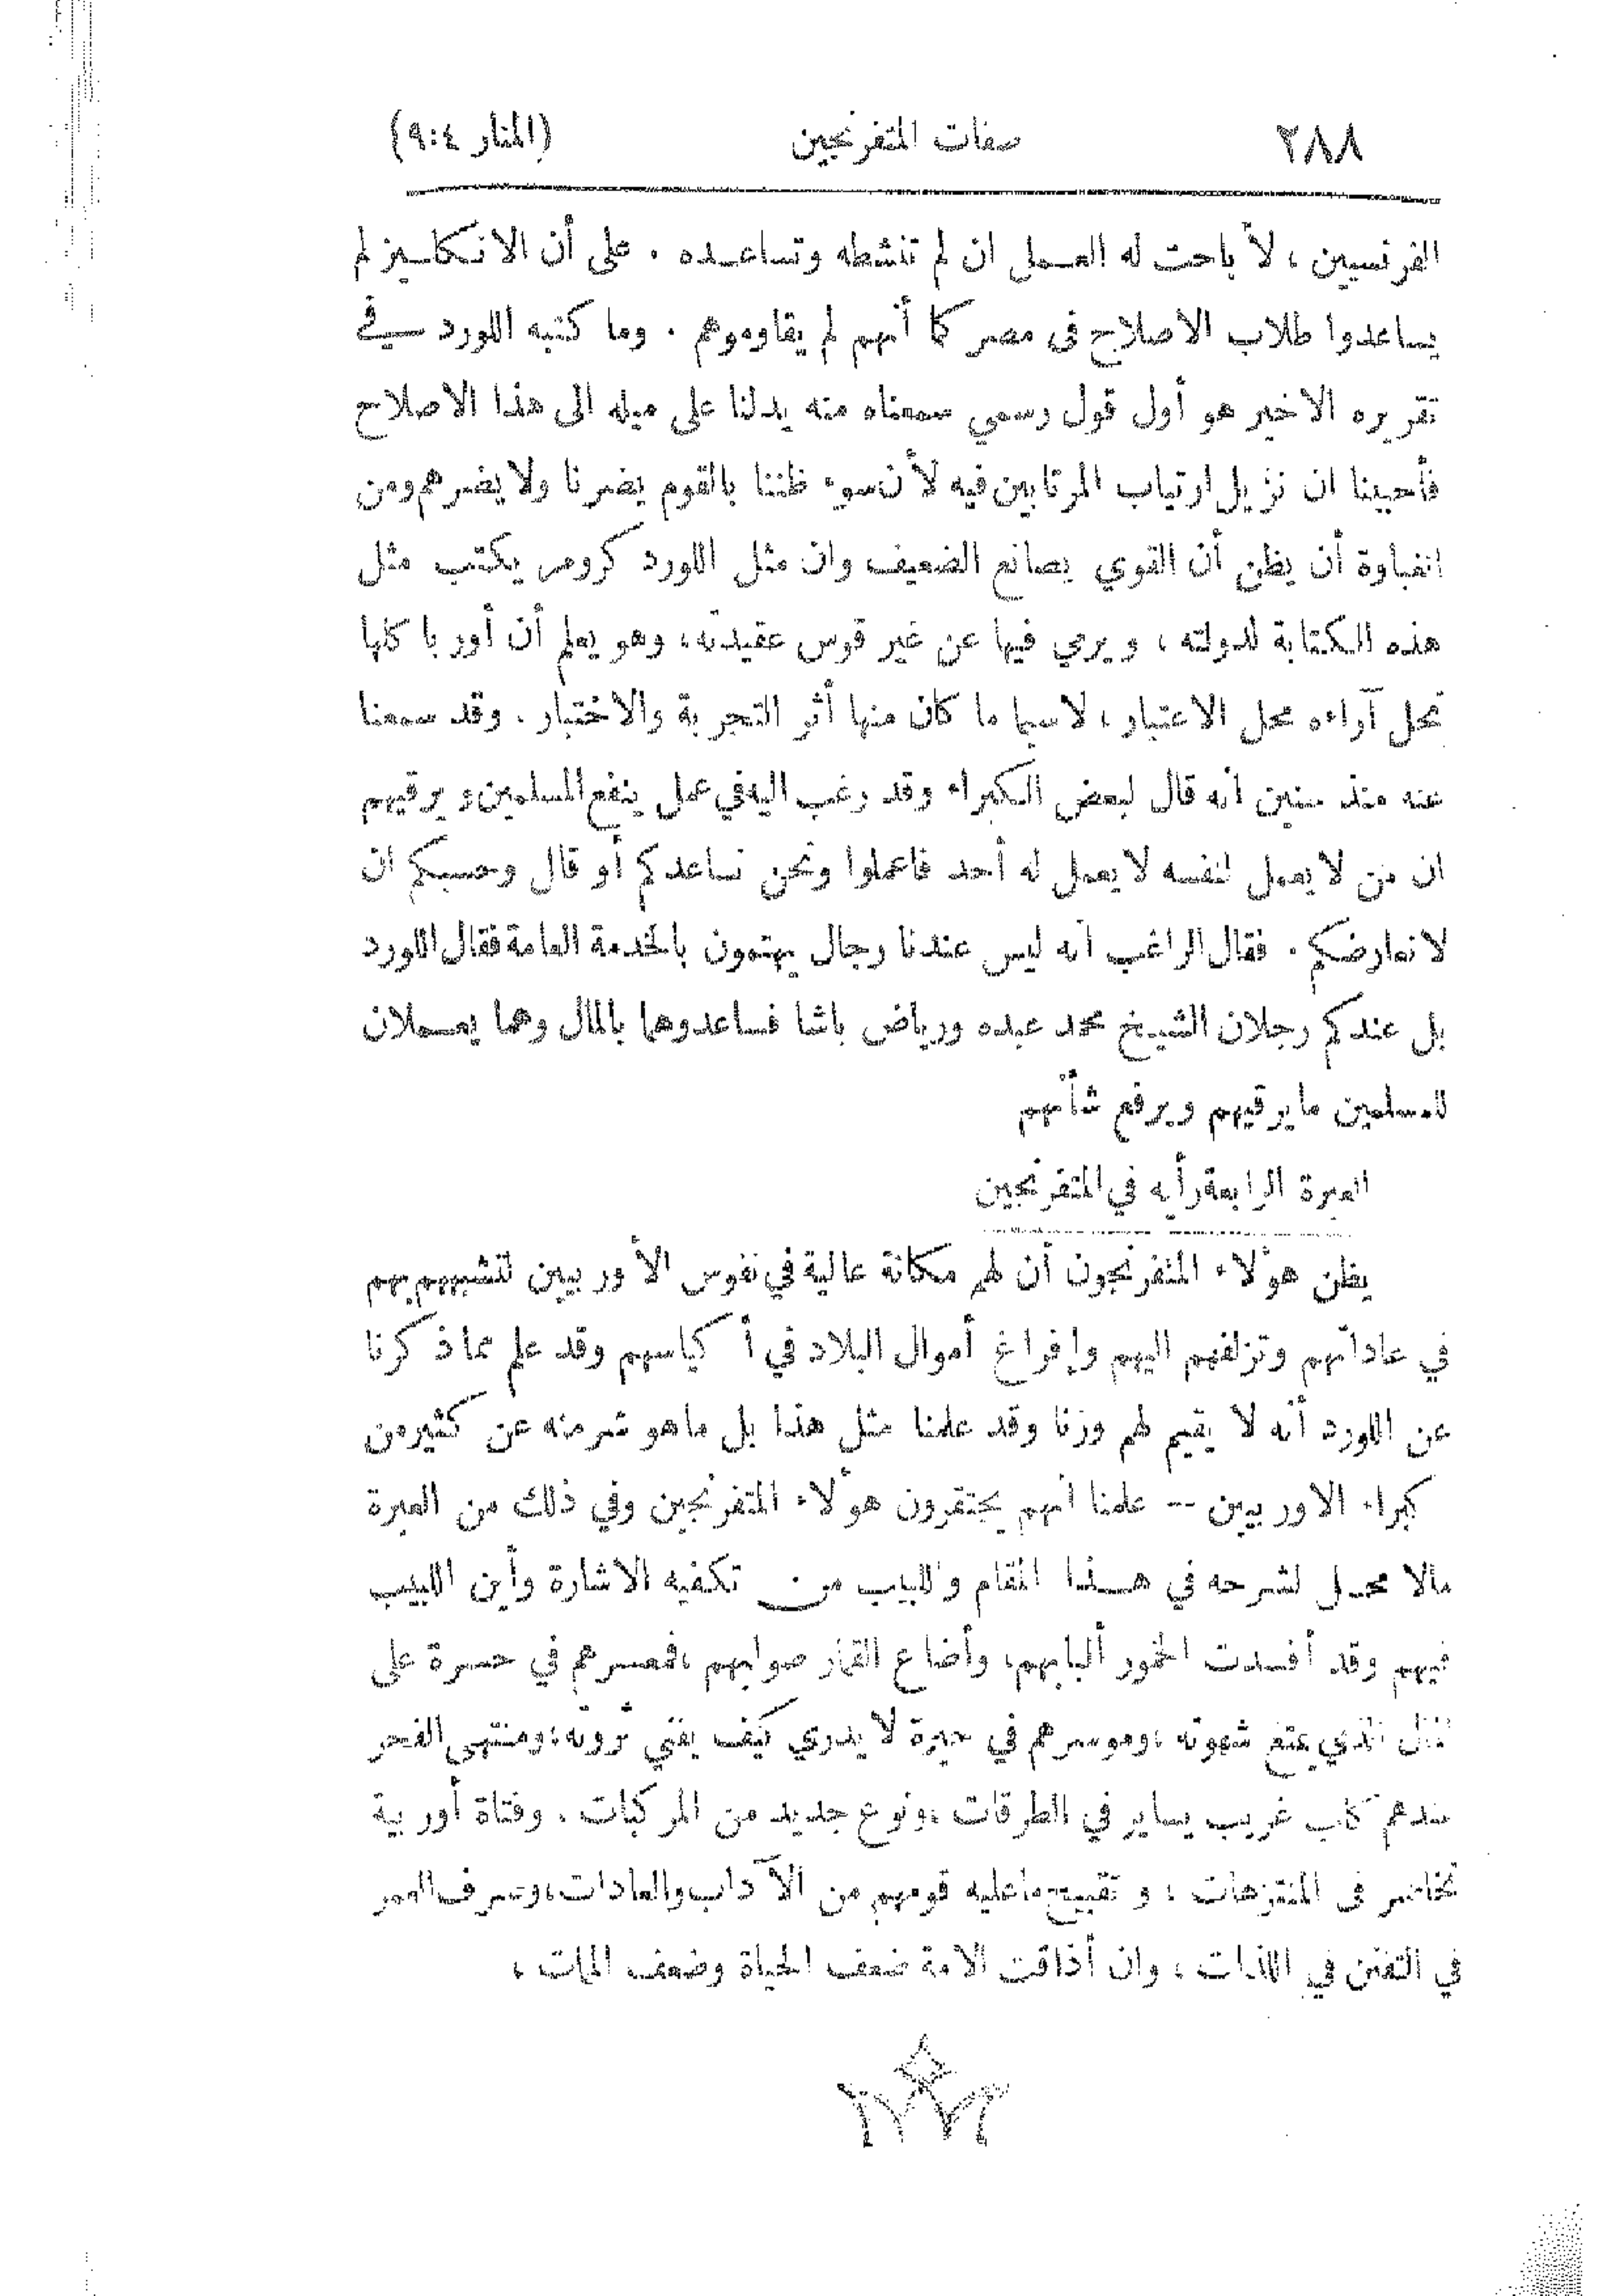 ٢٨٨ صفات المتفرنجين (المنار ٩:٤)
الفرنسيين ، لأباحت له العمل ان لم تنشطه وتساعده . على أن الانكليز لم
يساعدوا طلاب الاصلاح في مصر كما أنهم لم يقاوموهم . وما كتبه اللورد في
تقريره الاخير هو أول قول رسمي سمعناه منه يدلنا على ميله الى هذا الاصلاح
فأحببنا ان نزيل ارتياب المرتابين فيه لأن سوء ظننا بالقوم يضرنا ولا يضرهم ومن
الغباوة أن يظن أن القوي يصانع الضعيف وان مثل اللورد كرومر يكتب مثل
هذه الكتابة لدولته ، ويرمي فيها عن غير قوس عقيدته ، وهو يعلم أن أوربا كلها
تحل آراءه محل الاعتبار ، لاسيما ما كان منها أثر التجربة والاختبار . وقد سمعنا
عنه منذ سنين أنه قال لبعض الكبراء وقد رغب اليه في عمل ينفع المسلمين ويرقيهم
ان من لا يعمل لنفسه لا يعمل له أحد فاعملوا ونحن نساعدكم أو قال وحسبكم ان
لا نعارضكم . فقال الراغب انه ليس عندنا رجال يهتمون بالخدمة العامة فقال اللورد
بل عندكم رجلان الشيخ محمد عبده ورياض باشا فساعدوهما بالمال وهما يعملان
للمسلمين ما يرقيهم ويرفع شأنهم
العبرة الرابعة رأيه في المتفرنجين
يظن هؤلاء المتفرنجون أن لهم مكانة عالية في نفوس الأوربيين لتشبههم بهم
في عاداتهم وتزلفهم اليهم وإفراغ أموال البلاد في أكياسهم وقد علم مما ذكرنا
عن اللورد أنه لا يقيم لهم وزنا وقد علمنا مثل هذا بل ما هو شر منه عن كثير من
كبراء الاوربيين -- علمنا أنهم يحتقرون هؤلاء المتفرنجين وفي ذلك من العبرة
مالا محل لشرحه في هذا المقام واللبيب من تكفيه الاشارة وأين اللبيب
فيهم وقد أفسدت الخمور ألبابهم، وأضاع القمار صوابهم ،فمعسرهم في حسرة على
المال الذي يمتع شهوته ،وموسرهم في حيرة لا يدري كيف يفني ثروته،ومنتهى الفخر
عندهم كلب غريب يساير في الطرقات ،ونوع جديد من المركبات . وفتاة أوربية
تخاصر في المنتزهات ، وتقبيح ما عليه قومهم من الآداب والعادات،وصرف العمر
في التفنن في اللذات ، وان أذاقت الامة ضعف الحياة وضعف الممات ،